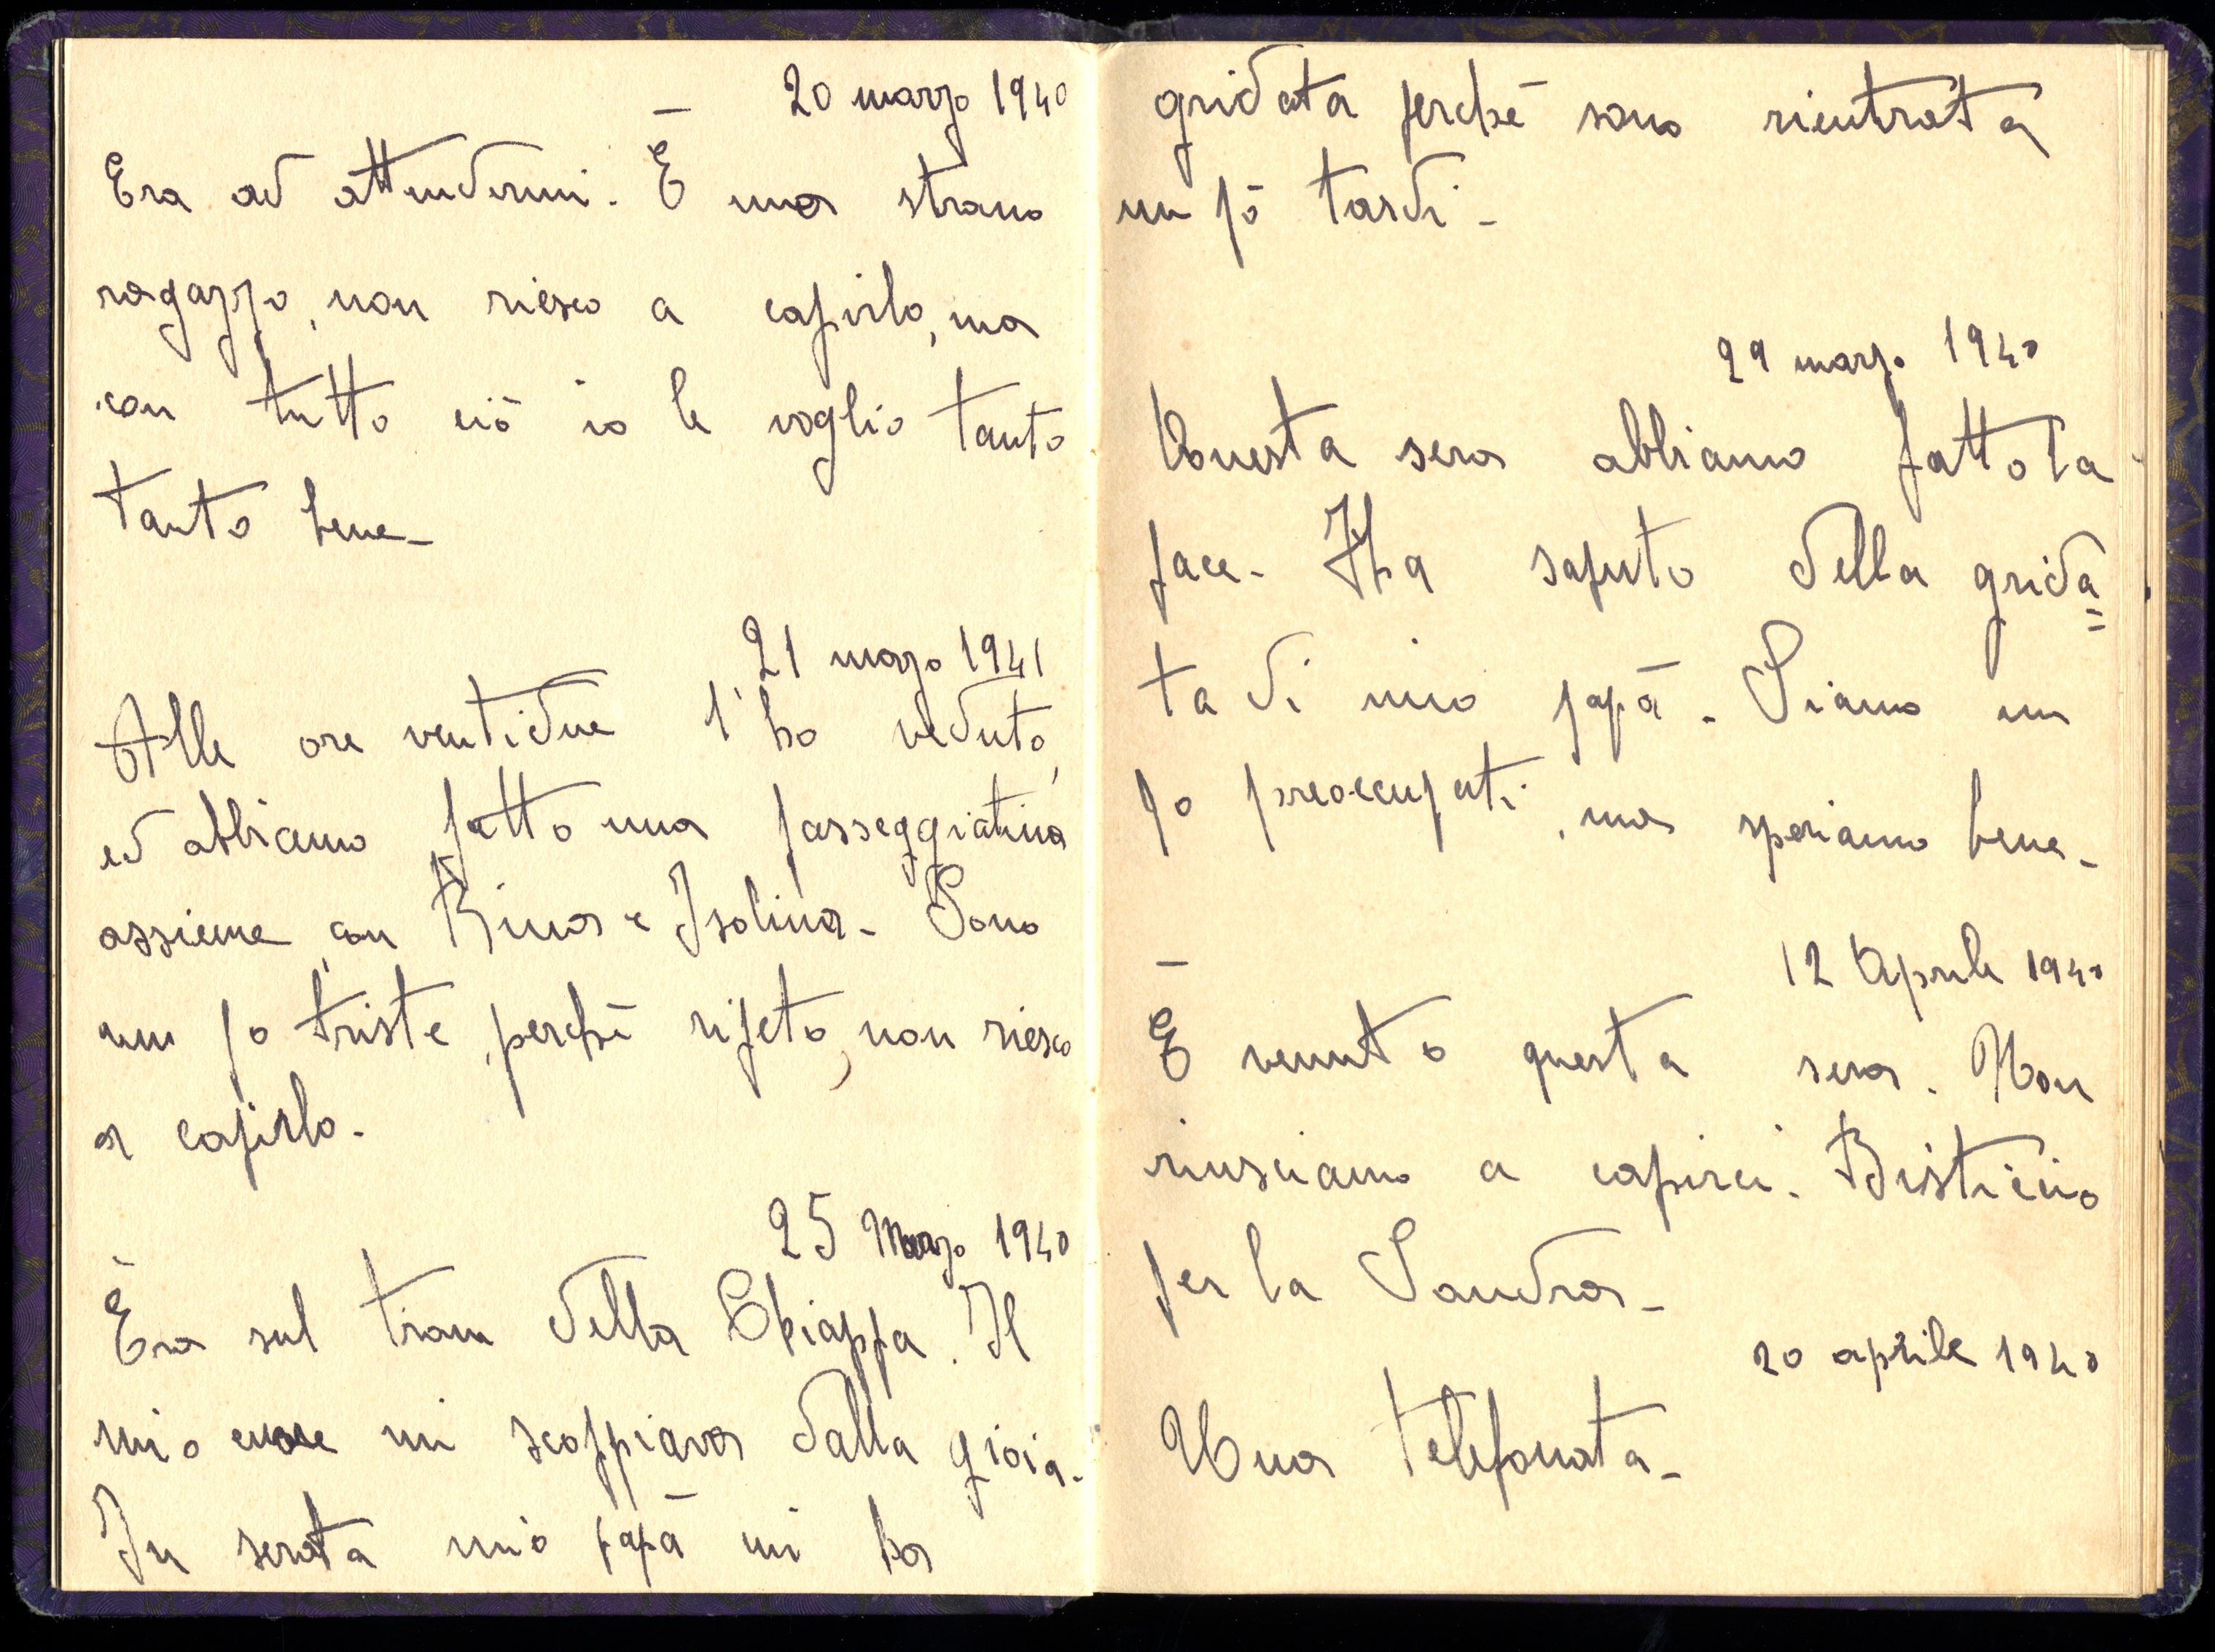 20 marzo 1940
Era ad attendermi. È uno strano
ragazzo, non riesco a capirlo, ma
con tutto ciò io le voglio tanto
tanto bene-
21 marzo 1941
Alle ore ventidue l'ho veduto,
ed abbiamo fatto una passeggiatina
assieme con Rina e Isolina- Sono
un po triste perchè ripeto, non riesco
a capirlo-
25 Marzo 1940
Era sul tram della Chiappa. Il
mio cuore mi scoppiava dalla gioia-
In serata mio papà mi ha
gridata perchè sono rientrata
un pò tardi-
29 marzo 1940
Questa sera abbiamo fatto la
pace- Ha saputo della grida=
ta di mio papà. Siamo un
po preoccupati, ma speriamo bene-
12 Aprile 1940
È venuto questa sera. Non
riusciamo a capirci. Bisticcio
per la Sandra-
20 aprile 1940
Una telefonata-